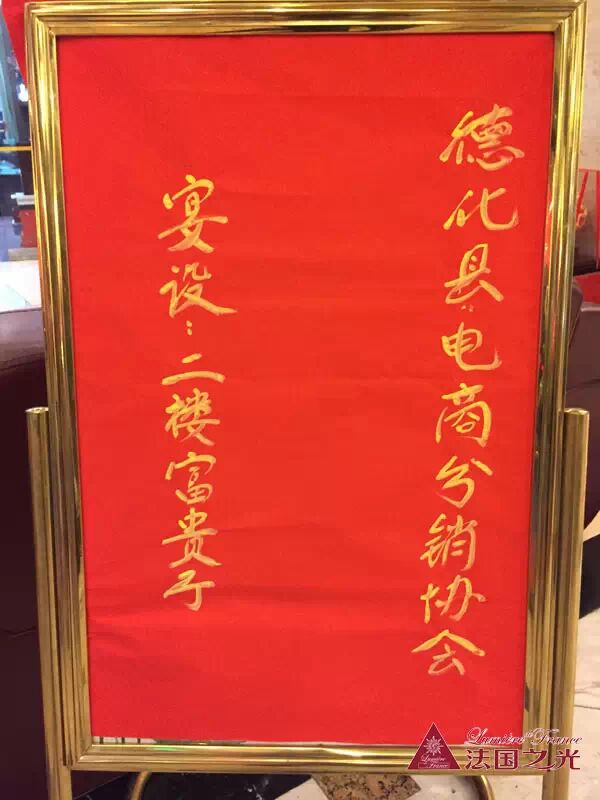 德化县电商分销协会
宴设:二楼富贵厅
Lumière de France
法国之光
Lumière de France